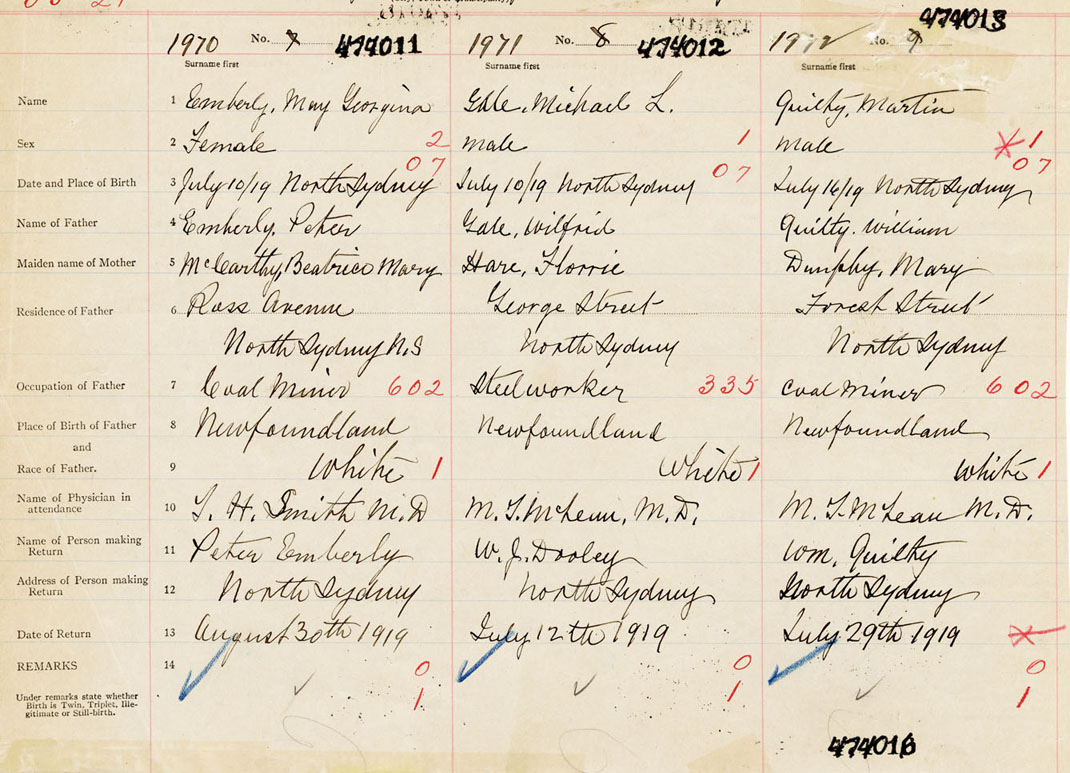 474013
1970 No. 7 474011 1971 No. 8 474012 1972 No. 9
Surname first Surname first Surname first
Name 1 Emberly, May Georgina Gale, Michael L. Quilty, Martin
Sex 2 Female 2 male 1 male 1
07 07 07
Date and Place of Birth 3 July 10/19 North Sydney July 10/19 North Sydney July 16/19 North Sydney
Name of Father 4 Emberly, Peter Gale, Wilfrid Quilty. William
Maiden name of Mother 5 McCarthy, Beatrice Mary Hare, Florrie Dunphy, Mary
Residence of Father 6 Ross Avenue George Street Forest Street
North Sydney N.S North Sydney North Sydney
Occupation of Father 7 Coal Miner 602 Steelworker 335 Coal miner 602
Place of Birth of Father 8 Newfoundland Newfoundland Newfoundland
and
Race of Father. 9 White 1 White 1 White 1
Name of Physician in
attendance 10 L. H. Smith M.D M. T. McLean, M.D. M. T. McLean M.D.
Name of Person making
Return 11 Peter Emberly W. J. Dooley Wm, Quilty
Address of Person making
Return 12 North Sydney North Sydney North Sydney
Date of Return 13 August 30th 1919 July 12th 1919 July 29th 1919
REMARKS 14 0 0 0
Under remarks state whether
Birth is Twin, Triplet, Ille-
gitimate or Still-birth. 1 1 1
474013